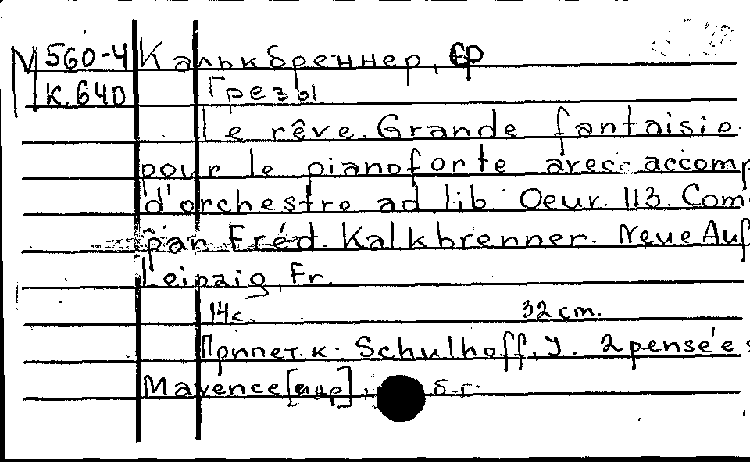 М 560-4 Калькбреннер, Фр
К. 640 Грезы
Le rêve. Grande fantaisie
pour le pianoforte avec accomp
d'orchestre ad lib. Oeur. 113. Com
par Fréd. Kalkbrenner. Neue Auf
Leipzig, Fr.
14с. 32 cm.
Приплет. к. Schulhoff, J. 2 pensées
Mayence [и др], б.г.